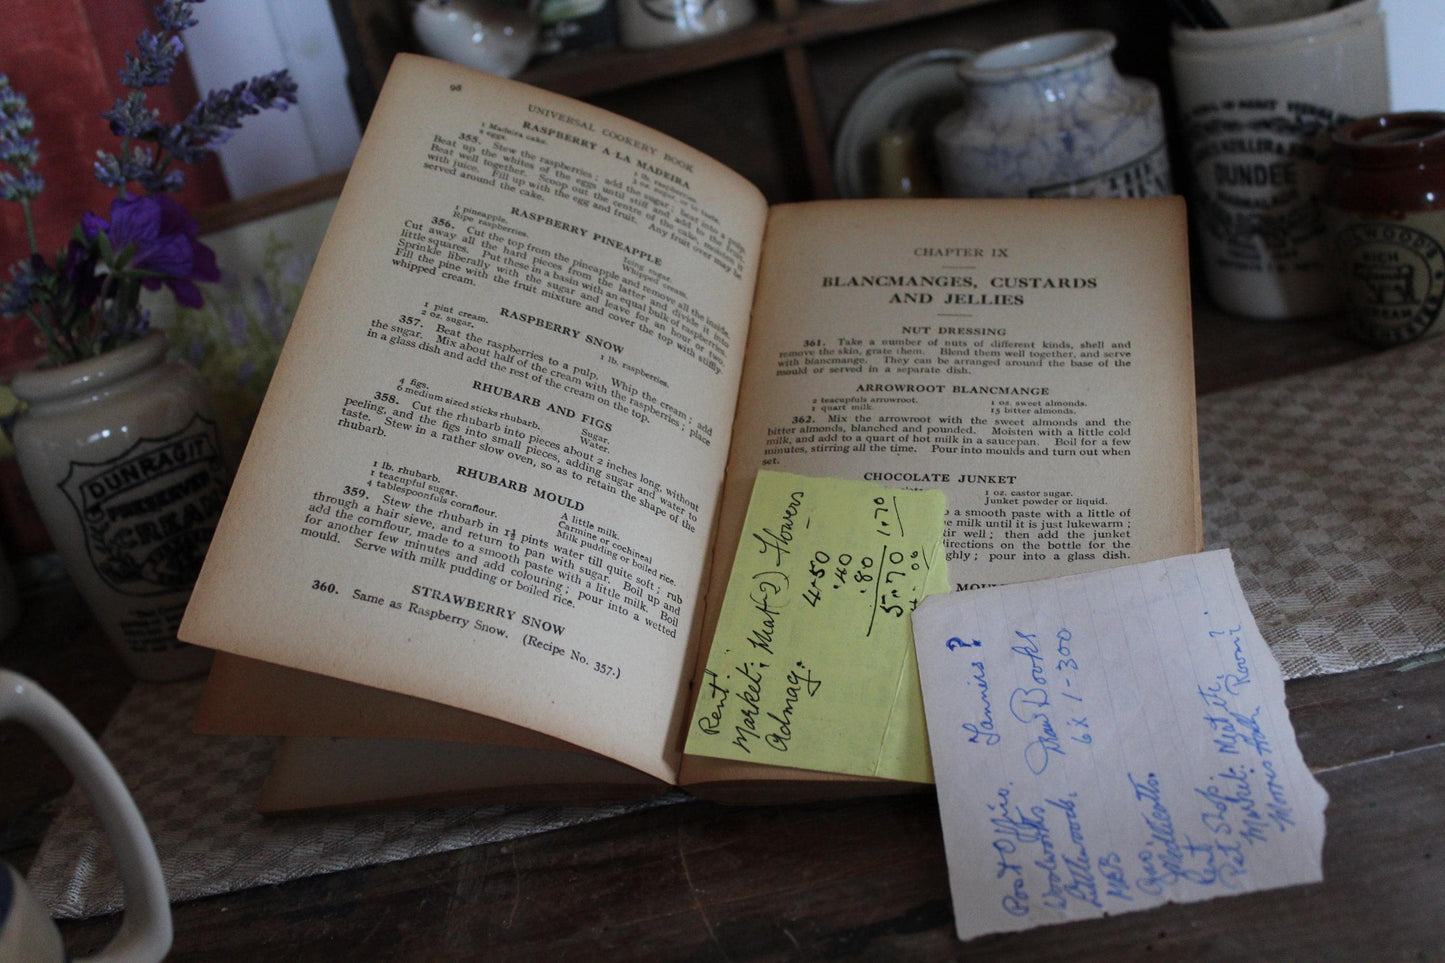 98
UNIVERSAL COOKERY BOOK
RASPBERRY A LA MADEIRA
1 Madeira cake.
2 eggs.
1 lb. raspberries.
3 oz. sugar, or to taste.
355. Stew the raspberries; add the sugar; beat into a pulp.
Beat up the whites of the eggs until stiff and add to the fruit.
Beat well together. Scoop out the centre of the cake, moisten it
with juice. Fill up with the egg and fruit. Any fruit over may be
served around the cake.
RASPBERRY PINEAPPLE
1 pineapple.
Ripe raspberries.
Icing sugar.
Whipped cream.
356. Cut the top from the pineapple and remove all the inside.
Cut away all the hard pieces from the latter and divide it into
little squares. Put these in a basin with an equal bulk of raspberries.
Sprinkle liberally with the sugar and leave for an hour or two.
Fill the pine with the fruit mixture and cover the top with stiffly-
whipped cream.
RASPBERRY SNOW
1 pint cream.
2 oz. sugar.
1 lb. raspberries.
357. Beat the raspberries to a pulp. Whip the cream; add
the sugar. Mix about half of the cream with the raspberries; place
in a glass dish and add the rest of the cream on the top.
RHUBARB AND FIGS
4 figs.
6 medium sized sticks rhubarb.
Sugar.
Water.
358. Cut the rhubarb into pieces about 2 inches long, without
peeling, and the figs into small pieces, adding sugar and water to
taste. Stew in a rather slow oven, so as to retain the shape of the
rhubarb.
RHUBARB MOULD
1 lb. rhubarb.
1 teacupful sugar.
4 tablespoonfuls cornflour.
A little milk.
Carmine or cochineal
Milk pudding or boiled rice.
359. Stew the rhubarb in 1½ pints water till quite soft; rub
through a hair sieve, and return to pan with sugar. Boil up and
add the cornflour, made to a smooth paste with a little milk. Boil
for another few minutes and add colouring; pour into a wetted
mould. Serve with milk pudding or boiled rice.
STRAWBERRY SNOW
360. Same as Raspberry Snow. (Recipe No. 357.)
CHAPTER IX
BLANCMANGES, CUSTARDS
AND JELLIES
NUT DRESSING
361. Take a number of nuts of different kinds, shell and
remove the skin, grate them. Blend them well together, and serve
with blancmange. They can be arranged around the base of the
mould or served in a separate dish.
ARROWROOT BLANCMANGE
2 teacupfuls arrowroot.
1 quart milk.
1 oz. sweet almonds.
15 bitter almonds.
362. Mix the arrowroot with the sweet almonds and the
bitter almonds, blanched and pounded. Moisten with a little cold
milk, and add to a quart of hot milk in a saucepan. Boil for a few
minutes, stirring all the time. Pour into moulds and turn out when
set.
CHOCOLATE JUNKET
1 oz. castor sugar.
Junket powder or liquid.
o a smooth paste with a little of
he milk until it is just lukewarm;
tir well; then add the junket
directions on the bottle for the
ghly; pour into a glass dish.
MOU
Rent.
Market: Meat(2) Flowers
4.50
.40
.80
5.70
1.70
Post Office.
Woolworths
M&B
Rent
Pet Shop.
Market: Meat
Morris
Room?
Draw Books
6 x 1-300
DUNRAGIT
PRESERVED
CREAM
DUNDEE
RICH
CREAM